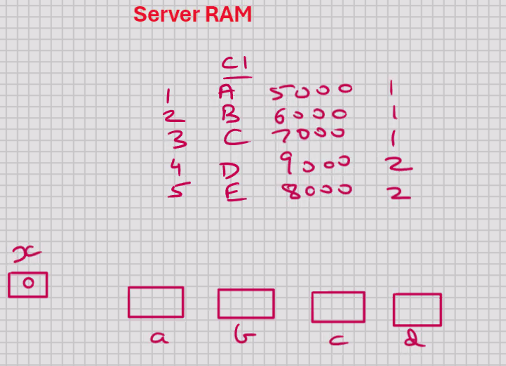 Server RAM
C1
1 A 5000 1
2 B 6000 1
3 C 7000 1
4 D 9000 2
5 E 8000 2
x
0
a b c d